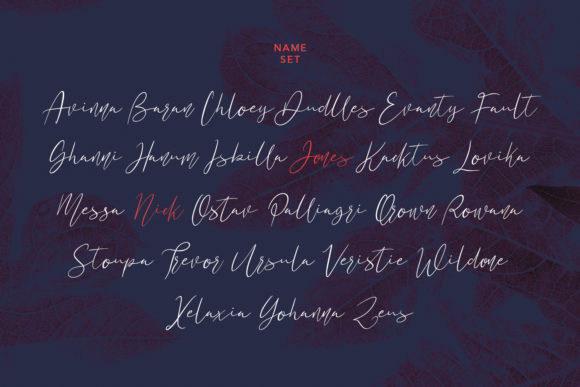 NAME
SET
Avinna Baran Chloey Dudlles Evanty Fault
Ghanni Hanum Isbilla Jones Kacktus Lovika
Messa Nick Ostav Palliagri Qrown Rowana
Stoupa Trevor Ursula Veristie Wildone
Xelaxia Yohanna Zeus